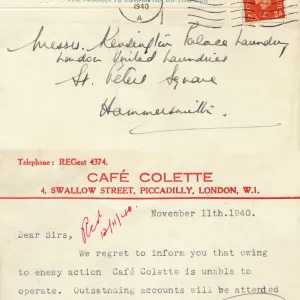 1940
A
Messrs. Kensington Palace Laundry
London United Laundries
St. Peters Square
Hammersmith.
Telephone: REGent 4374.
CAFÉ COLETTE
4, SWALLOW STREET, PICCADILLY, LONDON, W.1.
November 11th.1940.
Recd
12/11/40
Dear Sirs,
We regret to inform you that owing
to enemy action Café Colette is unable to
operate. Outstanding accounts will be attended